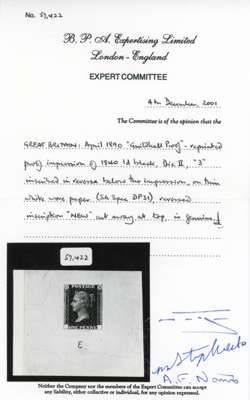 No. 57,422
B. P. A. Expertising Limited
London - England
EXPERT COMMITTEE
4th December, 2001
The Committee is of the opinion that the
GREAT BRITAIN: April 1890 "Guildhall Proof" - reprinted
proof impression of 1840 1d black, Die II, "3"
inscribed in reverse below the impression, on thin
white wove paper (SG Spec DP31), reversed
inscription "NEW" cut away at top, is genuine
57,422
POSTAGE
ONE PENNY
Neither the Company nor the members of the Expert Committee can accept
any liability, either collective or individual, for any opinion expressed.